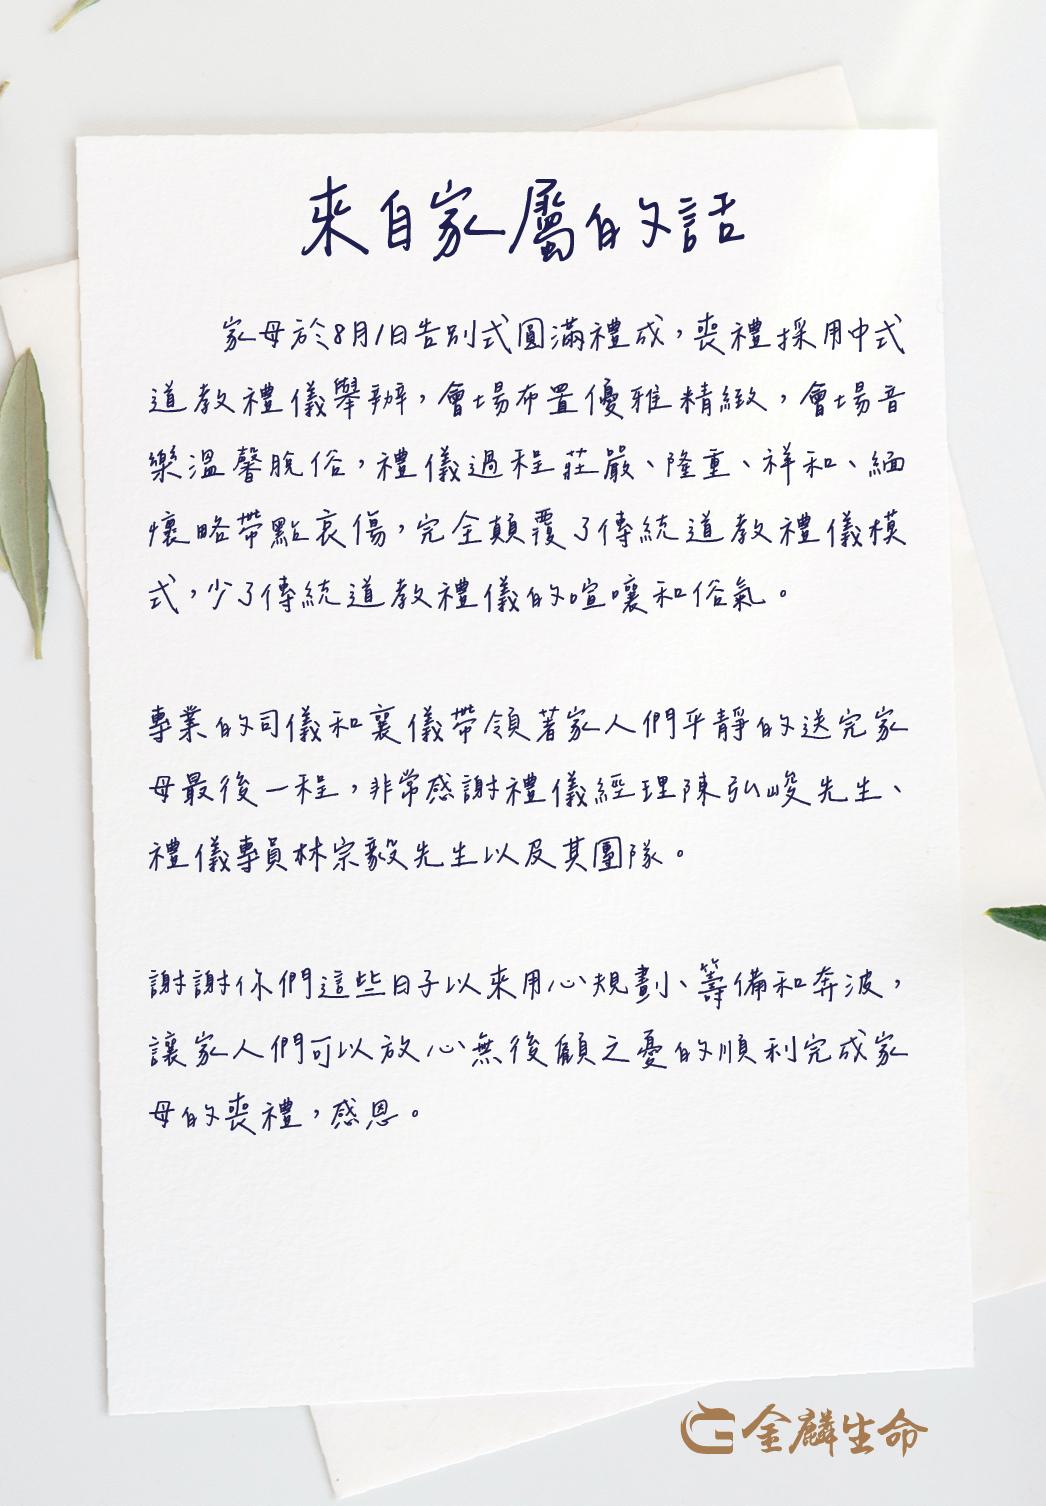 來自家屬的話
家母於8月1日告別式圓滿禮成，喪禮採用中式
道教禮儀舉辦，會場布置優雅精緻，會場音
樂溫馨脫俗，禮儀過程莊嚴、隆重、祥和、緬
懷略帶點哀傷，完全顛覆了傳統道教禮儀模
式，少了傳統道教禮儀的喧嚷和俗氣。
專業的司儀和襄儀帶領著家人們平靜的送完家
母最後一程，非常感謝禮儀經理陳弘峻先生、
禮儀專員林宗毅先生以及其團隊。
謝謝你們這些日子以來用心規劃、籌備和奔波，
讓家人們可以放心無後顧之憂的順利完成家
母的喪禮，感恩。
金麟生命